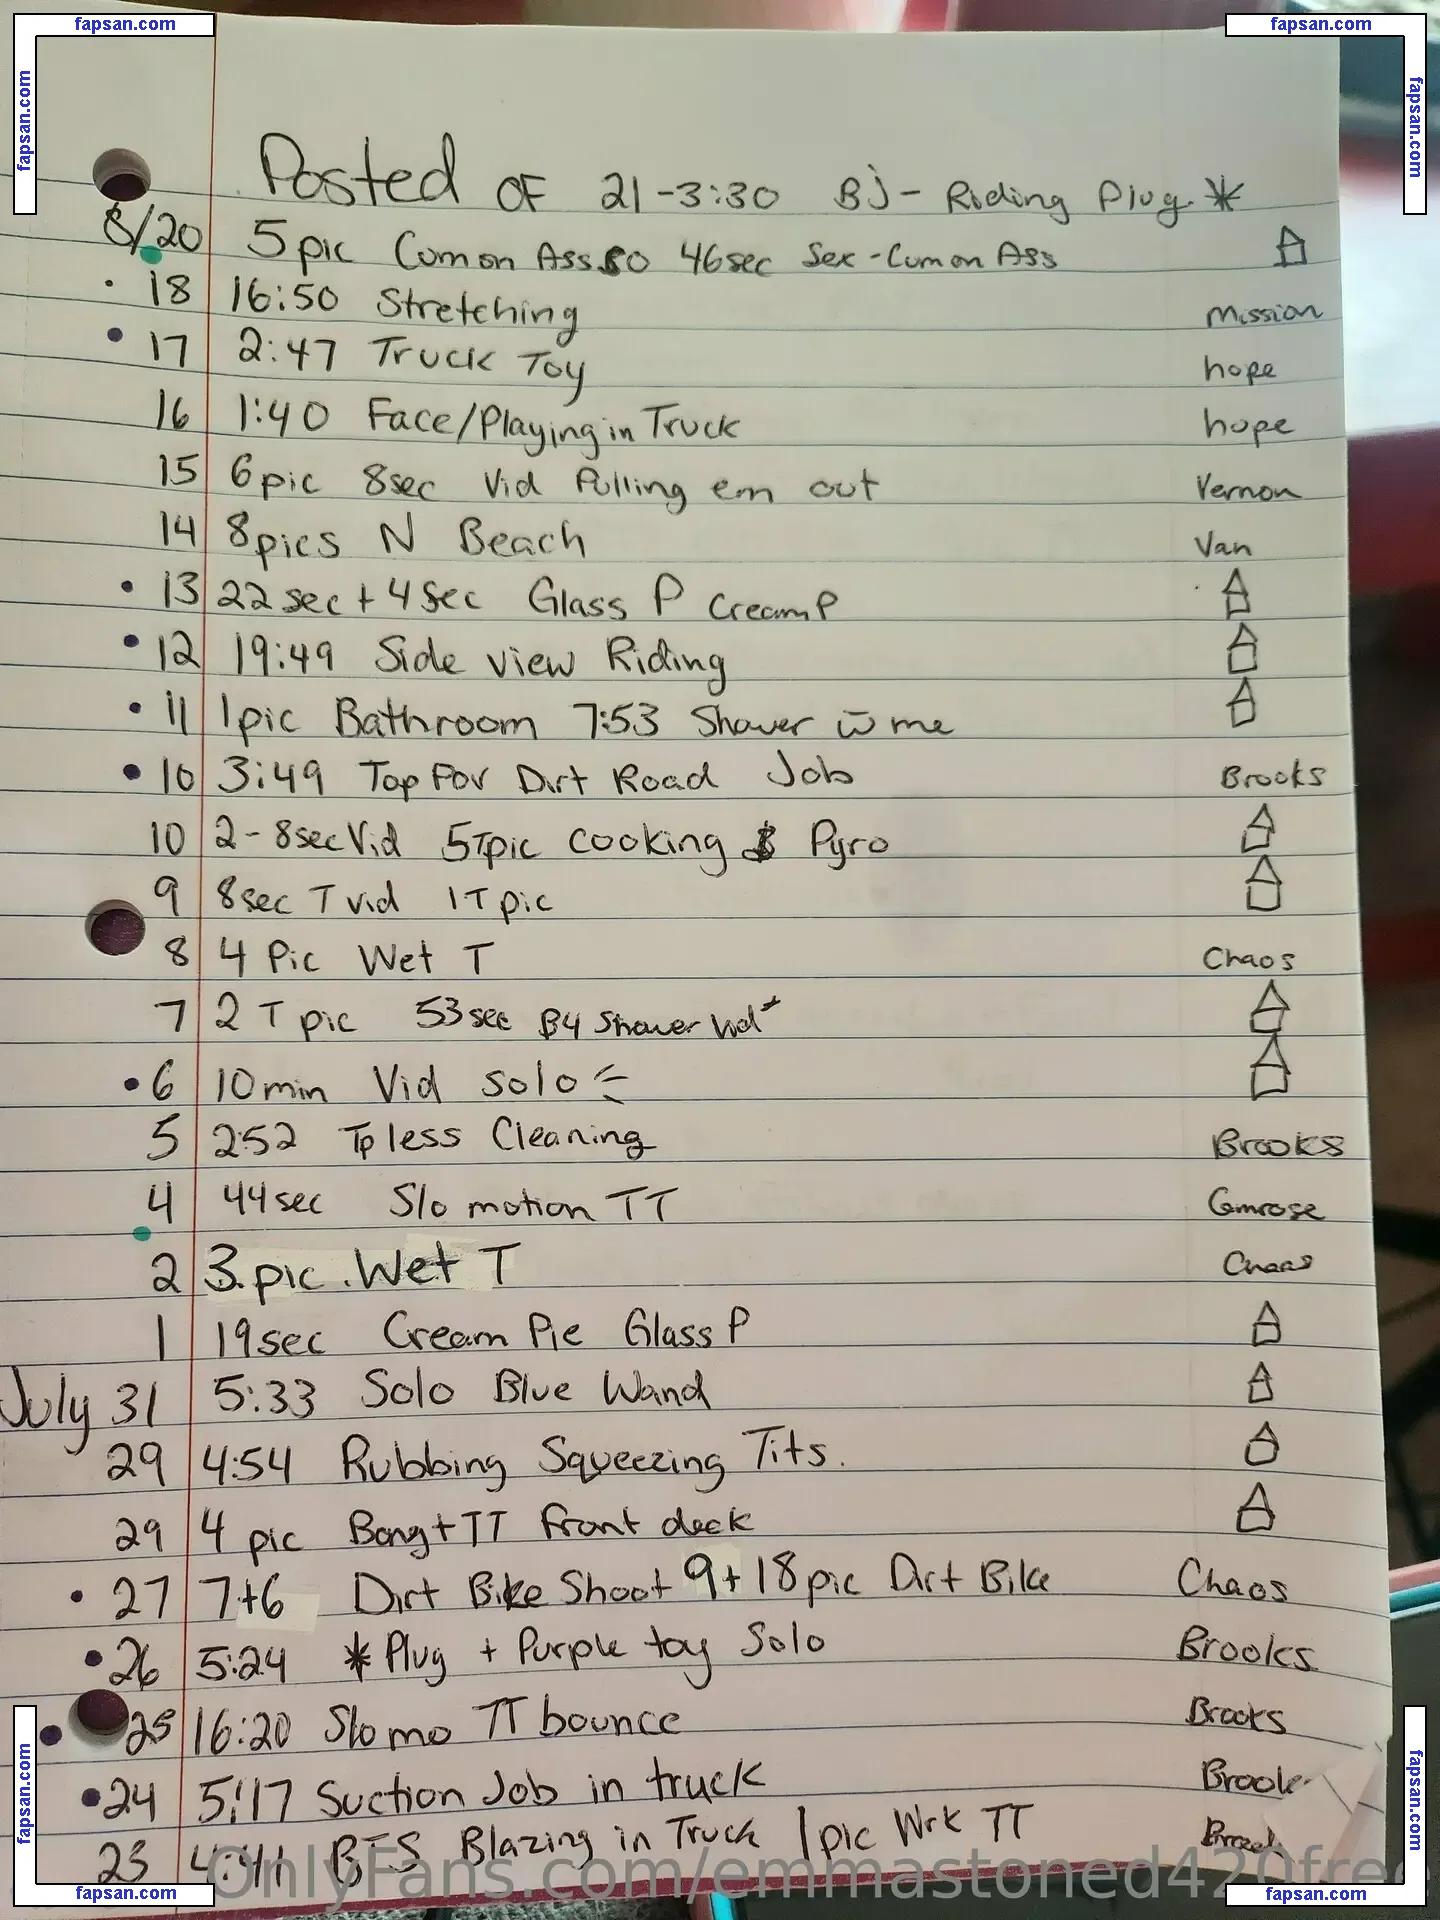 fapsan.com
fapsan.com
fapsan.com
fapsan.com
Posted OF 21-3:30 BJ - Riding Plug *
8/20 5pic Cum on Ass 46sec Sex-Cum on Ass
18 16:50 Stretching Mission
17 2:47 Truck Toy hope
16 1:40 Face/Playing in Truck hope
15 6pic 8sec Vid Pulling em out Vernon
14 8pics N Beach Van
13 22sec + 4sec Glass P CreamP
12 19:49 Side view Riding
11 1pic Bathroom 7:53 Shower w me
10 3:49 Top For Dirt Road Job Brooks
10 2-8sec Vid 5Tpic cooking Pyro
9 8sec T vid 1T pic
8 4 Pic Wet T Chaos
7 2 T pic 53sec B4 Shower Vid*
6 10min Vid solo
5 252 Tpless Cleaning Brooks
4 44sec Slo motion TT Camrose
2 3.pic.Wet T Chaos
1 19sec Cream Pie Glass P
July 31 5:33 Solo Blue Wand
29 4:54 Rubbing Squeezing Tits.
29 4 pic Bong+TT front deck
27 7+6 Dirt Bike Shoot 9+18pic Dirt Bike Chaos
26 5:24 *Plug + Purple toy Solo Brooks
25 16:20 Slo mo TT bounce Brooks
24 5:17 Suction Job in truck Brook
23 4:41 BTS Blazing in Truck 1pic Wrk TT
OnlyFans.com/emmastoned420free
fapsan.com
fapsan.com
fapsan.com
fapsan.com